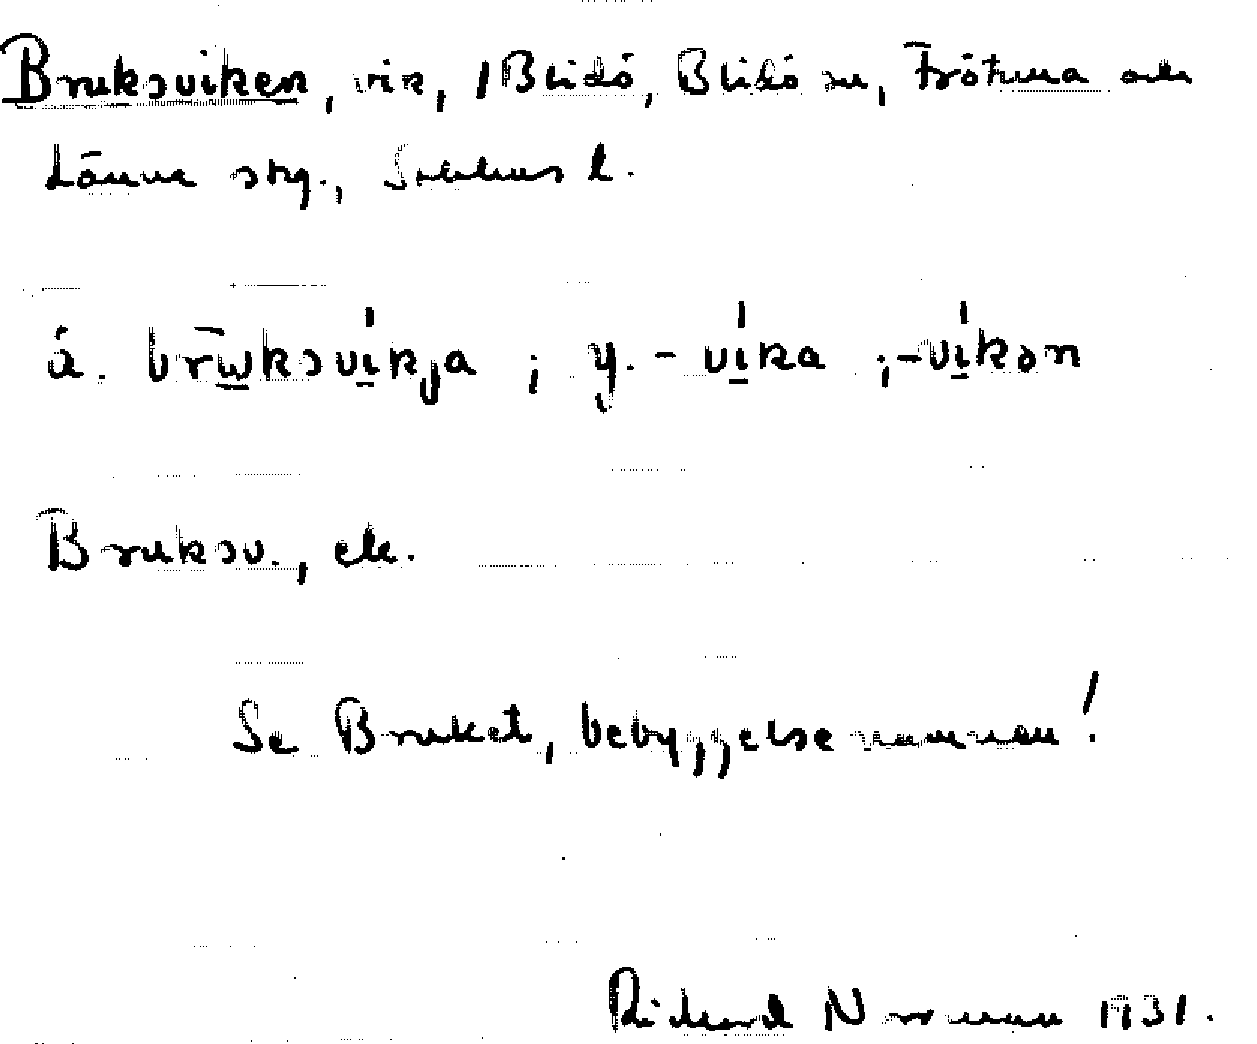 Bruksviken, vik, / Blidö, Blidö sn, Frötuna och
Länna skg., Sthlms l.
ä. brūksvíkja ; y. -víka ; -víkən
Bruksv., ek.
Se Bruket, bebyggelsenamnen!
Richard Norrman 1931.